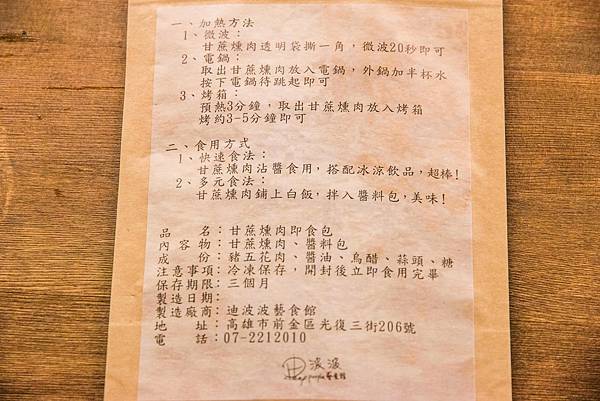 一、加熱方法
1、微波：
甘蔗燻肉透明袋撕一角，微波20秒即可
2、電鍋：
取出甘蔗燻肉放入電鍋，外鍋加半杯水
按下電鍋待跳起即可
3、烤箱：
預熱3分鐘，取出甘蔗燻肉放入烤箱
烤約3-5分鐘即可
二、食用方式
1、快速食法：
甘蔗燻肉沾醬食用，搭配冰涼飲品，超棒!
2、多元食法：
甘蔗燻肉鋪上白飯，拌入醬料包，美味!
品　　名：甘蔗燻肉即食包
內 容 物：甘蔗燻肉、醬料包
成　　份：豬五花肉、醬油、烏醋、蒜頭、糖
注意事項：冷凍保存，開封後立即食用完畢
保存期限：三個月
製造日期：
製造廠商：迪波波藝食館
地　　址：高雄市前金區光復三街206號
電　　話：07-2212010
波波